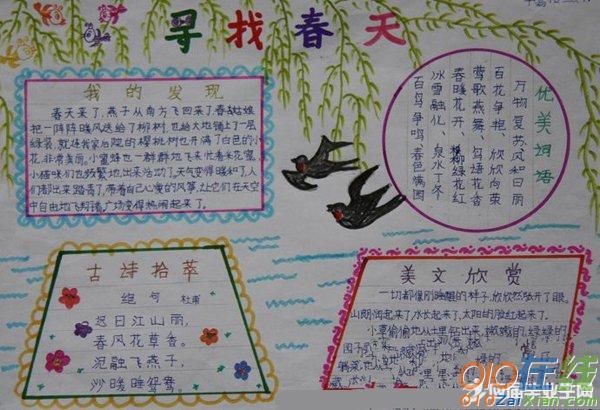 寻找春天
我的发现
春天来了,燕子从南方飞回来了,春姑娘
把一阵阵暖风送给了柳树,也给大地铺上了一层
绿装,就连我家后院的樱桃树也开满了白色的小
花,非常美丽。小蜜蜂也一群群地飞来忙着采花蜜,
小猫咪们也频繁地出来活动了,天气变得暖和了,人
们都出来踏青了,带着自己心爱的风筝,让它们在天空
中自由地飞翔着,广场变得热闹起来了。
优美词语
万物复苏 风和日丽
百花争艳 欣欣向荣
莺歌燕舞 鸟语花香
春暖花开 柳绿花红
冰雪融化 泉水丁冬
百鸟争鸣 春色满园
古诗拾萃
绝句 杜甫
迟日江山丽,
春风花草香。
泥融飞燕子,
沙暖睡鸳鸯。
美文欣赏
一切都像刚睡醒的样子,欣欣然张开了眼。
山朗润起来了,水长起来了,太阳的脸红起来了。
小草偷偷地从土里钻出来,嫩嫩的,绿绿的